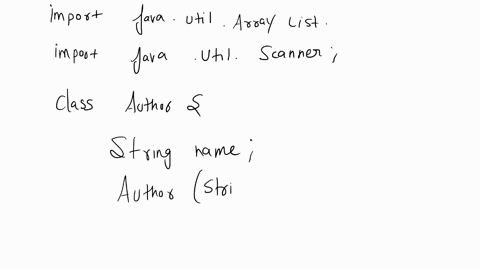 import java.util.Array List.
import java.util.Scanner;
Class Author {
String name;
Author (Stri